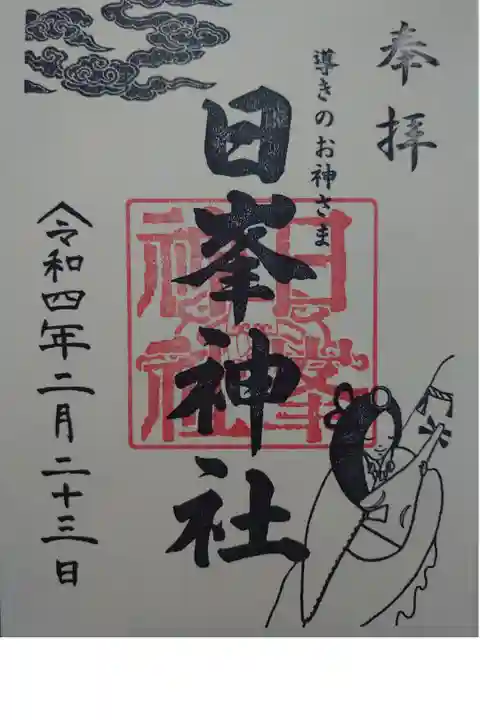 奉拝
導きのお神さま
日峯神社
日峯神社
令和四年二月二十三日